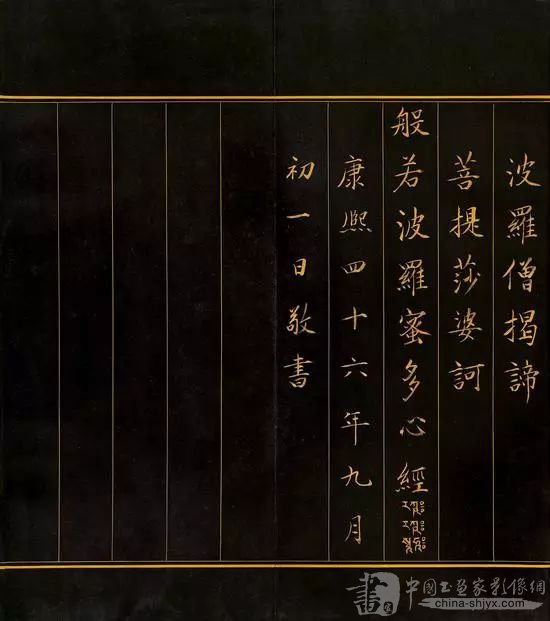 波羅僧揭諦
菩提莎婆訶
般若波羅蜜多心經
康熙四十六年九月
初一日敬書
中國書畫家影像網
china-shjyx.com